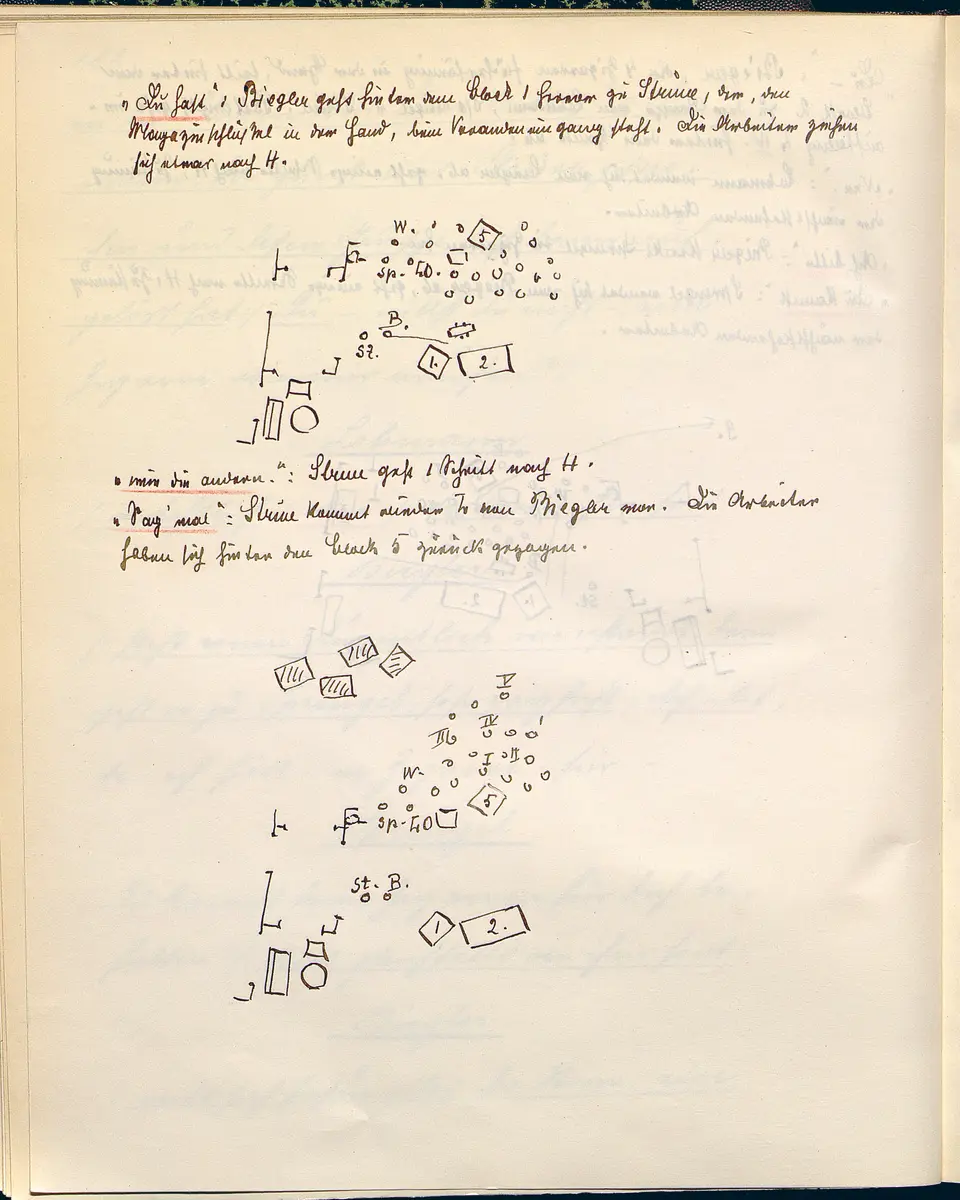 „Du hast“: Biegler geht hinter dem Block 1 hervor zu Strun̄e, der, den
Magazinschlüssel in der Hand, beim Verandaeingang steht. Die Arbeiter ziehen
sich etwas nach H.
W. 5
Sp. LO.
B.
St.
1. 2.
„wie die andern.“: Strun̄e geht 1 Schritt nach H.
„Sag' mal“: Strun̄e kommt wieder zu Biegler vor. Die Arbeiter
haben sich hinter den Block 5 zurück gezogen.
V
IV
III
I II
W.
5
Sp. LO
St. B.
1 2.